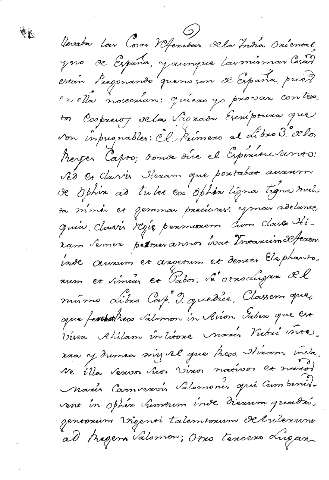 llevaba las Cosas de Zenubar de la India oriental,
y no de España, y aunque las mismas Casas
estan pregonando que no son de España, pues
en ella no se crian: quiero yo provar con tex-
tos expresos de la Sagrada Escriptura que
son inpugnables: El Primero el Libro 3º de los
Reyes Capto, donde dice el Espiritu Santo:
Sed et clasis Hiram que portabat aurum
de Ophir ad tulit ex Ophir ligna tigna mul-
ta nimis et gemmas preciosas: y mas adelante
quia clasis Regis per mare cum clase Hi-
ram semel per tres annos ibat
inde aurum et argentum et dentes Elephanto-
rum et simias et Pabos. en otro lugar del
mismo Libro Capº 9. que dice, Classem que-
que fecit Rex Salomon in Asion Gaber que est
iuxta Ahilam in litore Maris Rubri in te-
rra ydumea misit que Rex Hiram in cla-
se illa servos suos viros nauticos et
Maris cum servis Salomonis qui cum benis-
sent in Ophir sumtum inde aurum quadri-
gentorum viginti talentorum detulerunt
ad Regem Salomon; Otro tercero Lugar